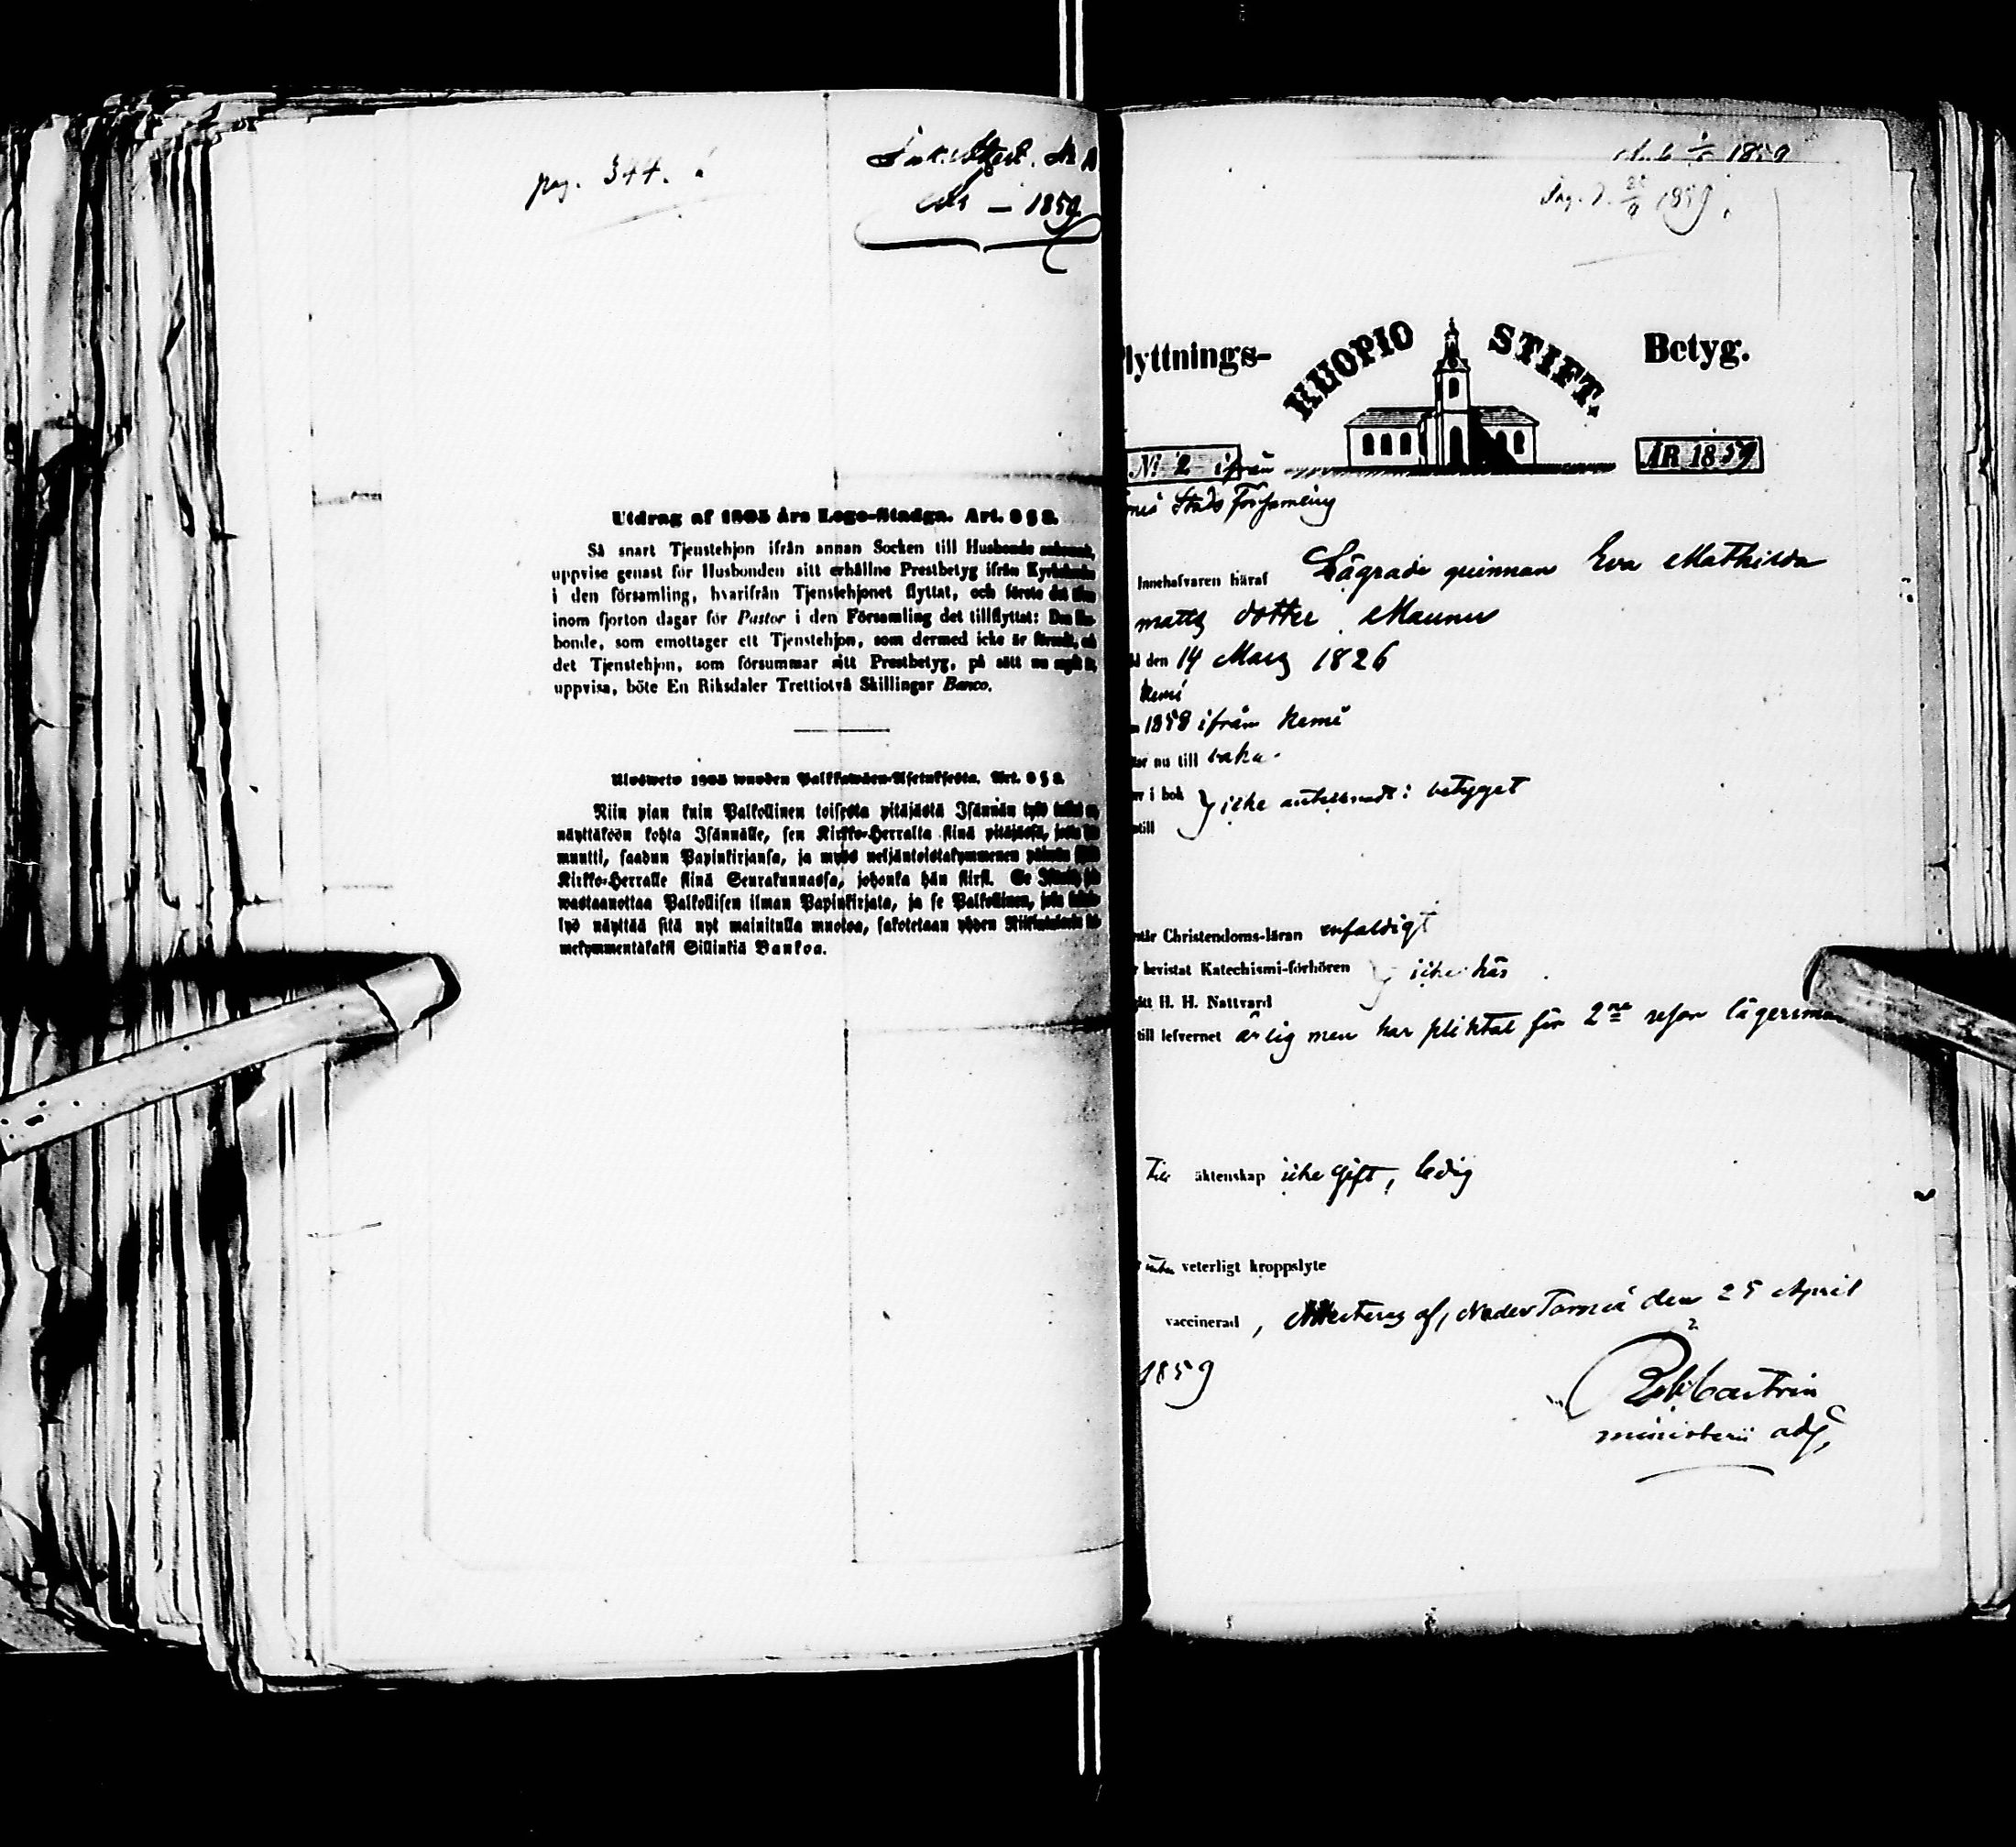 pag. 344.
Att. № 1
1859
Utdrag af 1805 års Lego-Stadga. Art. 3 § 3.
Så snart Tjenstehjon ifrån annan Socken till Husbonde
uppvise genast för Husbonden sitt erhållne Prestbetyg ifrån
i den församling, hvarifrån Tjenstehjonet flyttat, och
inom fjorton dagar för Pastor i den Församling det tillflyttat:
bonde, som emottager ett Tjenstehjon, som dermed icke är
det Tjenstehjon, som försummar sitt Prestbetyg, på sätt nu
uppvisa, böte En Riksdaler Trettiotvå Skillingar Banco.
Ulosweto 1805 wuoden Palkkawäen-Asetuksesta. Art.
Niin pian kuin Palkollinen toisesta pitäjästä Isännän
näyttäköön kohta Isännälle, sen Kirkko-Herralta siinä pitäjässä,
muutti, saadun Papinkirjansa, ja myös neljäntoistakymmenen
Kirkko-Herralle siinä Seurakunnassa, johonka hän siirsi. Se
wastaanottaa Palkollisen ilman Papinkirjata, ja se Palkollinen,
lyö näyttää sitä nyt mainitulla muotoa, sakotetaan yhden
mekymmentäkaksi Sillinkiä Bankoa.
1859
1859
lyttnings- KUOPIO STIFT. Betyg.
№ 2 ifrån ÅR 1859
Stads Församling
Innehafvaren häraf Lägrade quinnan Eva Mathilda
matts dotter Maunu
den 14 Mars 1826
Kemi
1858 ifrån Kemi
nu till baka
i bok } icke antecknadt i betyget
till
Christendoms-läran enfaldigt
bevistat Katechismi-förhören } icke här
H. H. Nattvard
till lefvernet ärlig men har pliktat för 2ne resor
Till äktenskap icke gift, ledig
utan veterligt kroppslyte
vaccinerad, Attesteras af, Neder Torneå den 25 April
1859
Castrén
ministerii adj.